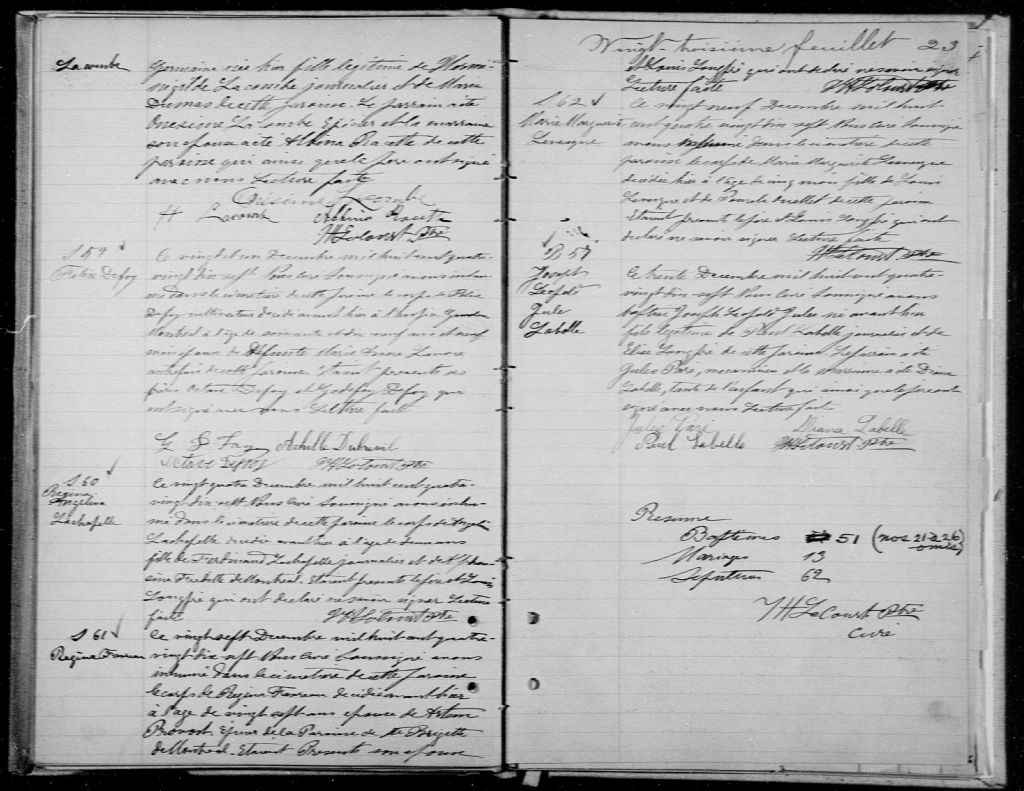 Lacombe
Germaine née hier fille légitime de
de Lacombe journalier et de Marie
Dumas de cette paroisse. Le parrain a été
Onesime Lacombe Epicier et la marraine
son épouse a été Albina Racette de cette
paroisse qui ainsi que le père ont signé
avec nous Lecture faite
Onesime Lacombe
H Lacombe Albina Racette
JH Lecourt Ptre
S 59
Felix Defoy
Ce vingt et un Decembre mil huit cent quatre-
vingt dix sept Nous Curé Soussigné avons inhu-
mé dans le cimetière de cette paroisse le corps de Felix
Defoy cultivateur décédé avant hier à
Montreal à l'age de soixante et dix neuf ans et neuf
mois époux de défunte Marie Anne
autrefois de cette paroisse. Etaient presents ses
frères Octave Defoy et Godefroy Defoy qui
ont signé avec nous Lecture faite
G D Foy Achille Dubreuil
Octave Defoy JH Lecourt Ptre
S 60
Regina
Angelina
Lachapelle
Ce vingt quatre Decembre mil huit cent quatre-
vingt dix sept Nous Curé Soussigné avons inhu-
mé dans le cimetière de cette paroisse le corps de
Lachapelle décédée avant hier à l'age de deux ans
fille de Ferdinand Lachapelle journalier et de
de Montreal. Etaient presents le père et Louis
Longpré qui ont declaré ne savoir signer Lecture
faite JH Lecourt Ptre
S 61
Regina Fareau
Ce vingt sept Decembre mil huit cent quatre-
vingt dix sept Nous Curé Soussigné avons
inhumé dans le cimetière de cette paroisse
le corps de Regina Fareau décédée avant hier
à l'age de vingt sept ans épouse de Arthur
Provost. Epicier de la Paroisse de Ste Brigitte
de Montreal. Etaient Presents son épouse
Vingt-troisième feuillet 23
et Louis Longpré qui ont declaré ne savoir signer
Lecture faite JH Lecourt Ptre
S 62
Marie Marguerite
Levesque
Ce vingt neuf Decembre mil huit
cent quatre vingt dix sept Nous Curé Soussigné
avons inhumé dans le cimetière de cette
paroisse le corps de Marie Marguerite Levesque
décédée hier à l'age de cinq mois fille de Louis
Levesque et de Ouellet de cette paroisse
Etaient presents le père et Louis Longpré qui ont
declaré ne savoir signer Lecture faite
JH Lecourt Ptre
B 57
Joseph
Leopold
Jule
Labelle
Ce trente Decembre mil huit cent quatre-
vingt dix sept Nous Curé Soussigné avons
baptisé Joseph Leopold Jules né avant hier
fils légitime de Paul Labelle journalier et de
Elise Longpré de cette paroisse. Le parrain a été
Jules Paré, mecanicien et la marraine a été Diana
Labelle, tante de l'enfant qui ainsi que le père ont
signé avec nous Lecture faite
Jules Paré Diana Labelle
Paul Labelle JH Lecourt Ptre
Resumé
Baptêmes 51 (nos 21 à 26
omis)
Mariages 13
Sépultures 62
JH Lecourt Ptre
Curé